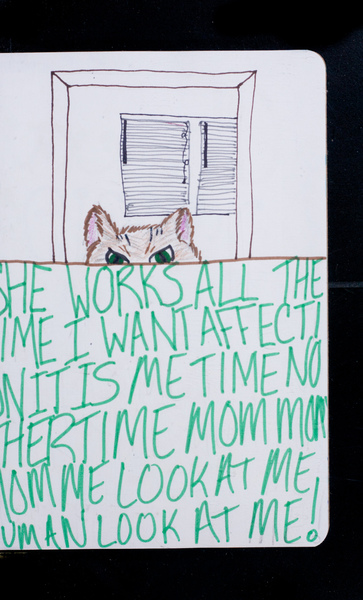 SHE WORKS ALL THE
TIME I WANT AFFECTI
ON IT IS ME TIME NO
THER TIME MOM MOM
MOM ME LOOK AT ME
HUMAN LOOK AT ME!